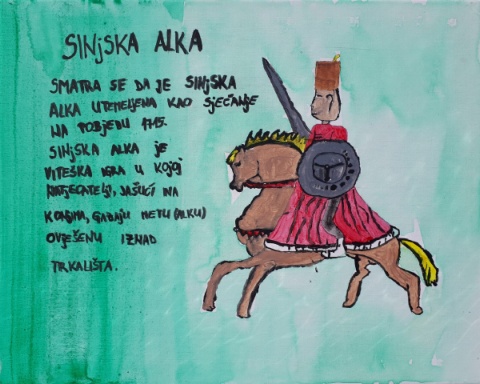 SINjSKA ALKA
SMATRA SE DA JE SINjSKA
ALKA UTEMELJENA KAO SJEĆANJE
NA POBJEDU 1715.
SINjSKA ALKA JE
VITEŠKA IGRA U KOJOJ
NATJECATELJI, JAŠUĆI NA
KONJIMA, GAĐAJU METU (ALKU)
OVJEŠENU IZNAD
TRKALIŠTA.